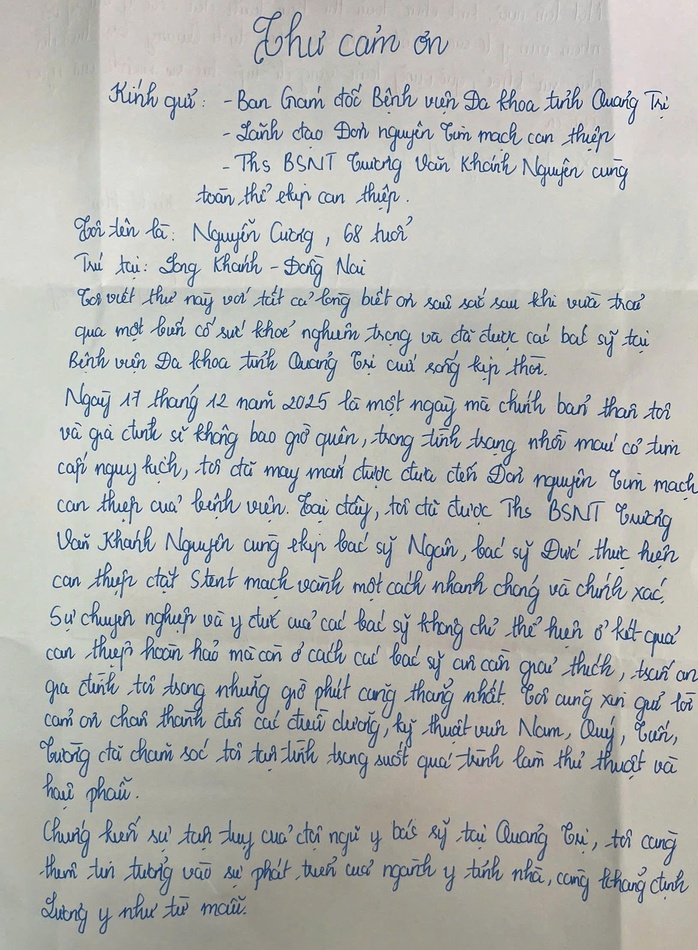 Thư cảm ơn
Kính gửi: - Ban Giám đốc Bệnh viện Đa khoa tỉnh Quảng Trị
- Lãnh đạo Đơn nguyên Tim mạch can thiệp
- Ths BSNT Trương Văn Khánh Nguyên cùng
toàn thể ekip can thiệp.
Tôi tên là: Nguyễn Cương, 68 tuổi
Trú tại: Long Khánh - Đồng Nai
Tôi viết thư này với tất cả lòng biết ơn sâu sắc sau khi vừa trải
qua một biến cố sức khoẻ nghiêm trọng và đã được các bác sỹ tại
Bệnh viện Đa khoa tỉnh Quảng Trị cứu sống kịp thời.
Ngày 17 tháng 12 năm 2025 là một ngày mà chính bản thân tôi
và gia đình sẽ không bao giờ quên, trong tình trạng nhồi máu cơ tim
cấp nguy kịch, tôi đã may mắn được đưa đến Đơn nguyên Tim mạch
can thiệp của bệnh viện. Tại đây, tôi đã được Ths BSNT Trương
Văn Khánh Nguyên cùng ekip bác sỹ Ngân, bác sỹ Đức thực hiện
can thiệp đặt Stent mạch vành một cách nhanh chóng và chính xác.
Sự chuyên nghiệp và y đức của các bác sỹ không chỉ thể hiện ở kết quả
can thiệp hoàn hảo mà còn ở cách các bác sỹ ân cần giải thích, trấn an
gia đình tôi trong những giờ phút căng thẳng nhất. Tôi cũng xin gửi lời
cảm ơn chân thành đến các điều dưỡng, kỹ thuật viên Nam, Quý, Tiến,
Trường đã chăm sóc tôi tận tình trong suốt quá trình làm thủ thuật và
hậu phẫu.
Chứng kiến sự tận tuỵ của đội ngũ y bác sỹ tại Quảng Trị, tôi càng
thêm tin tưởng vào sự phát triển của ngành y tỉnh nhà, càng khẳng định
Lương y như từ mẫu.